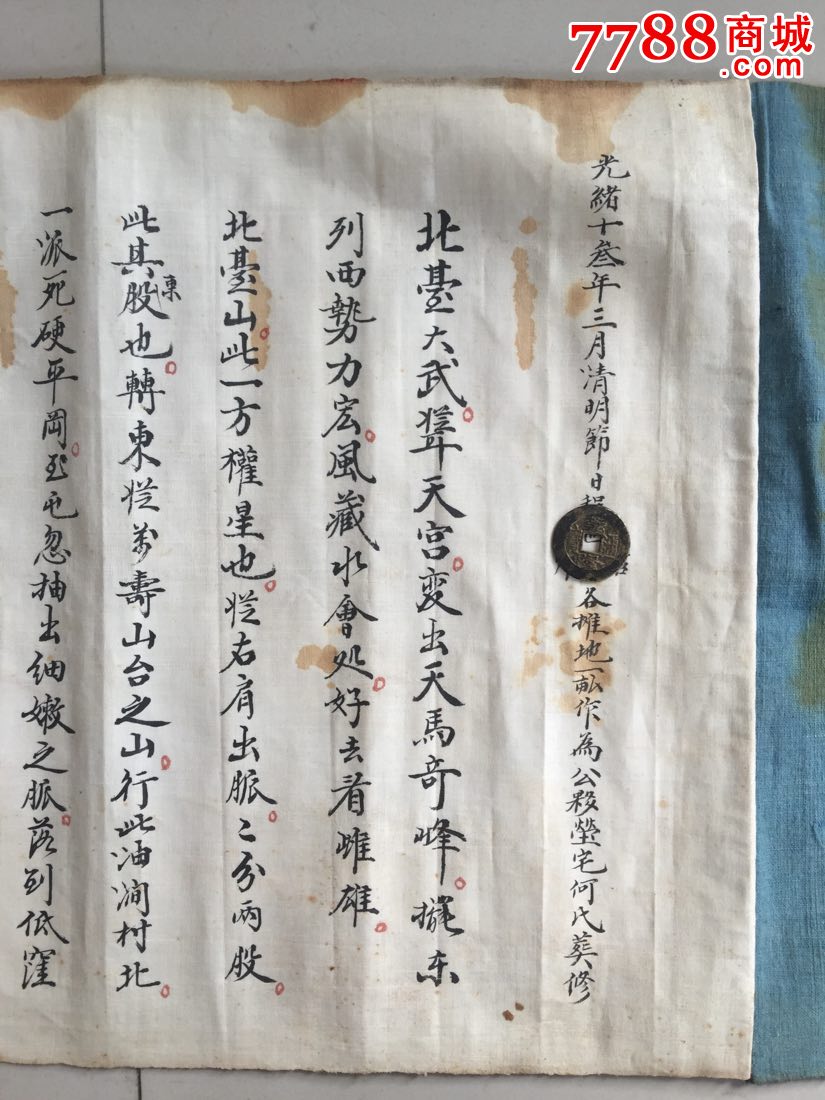 7788商城
.com
光緒十叁年三月清明節日
各摧地一畝作為公夥塋宅何氏葬修
北臺大武聳天宫。变出天馬奇峰。擺东
列西勢力宏。風藏水會処。好去看雌雄。
北臺山。此一方權星也。従右肩出脈。〻分兩股。
此其東股也。轉東従萬壽山台之山。行此油澗村北。
一派死硬平岡。至屯忽抽出细嫩之脈。落列低窪